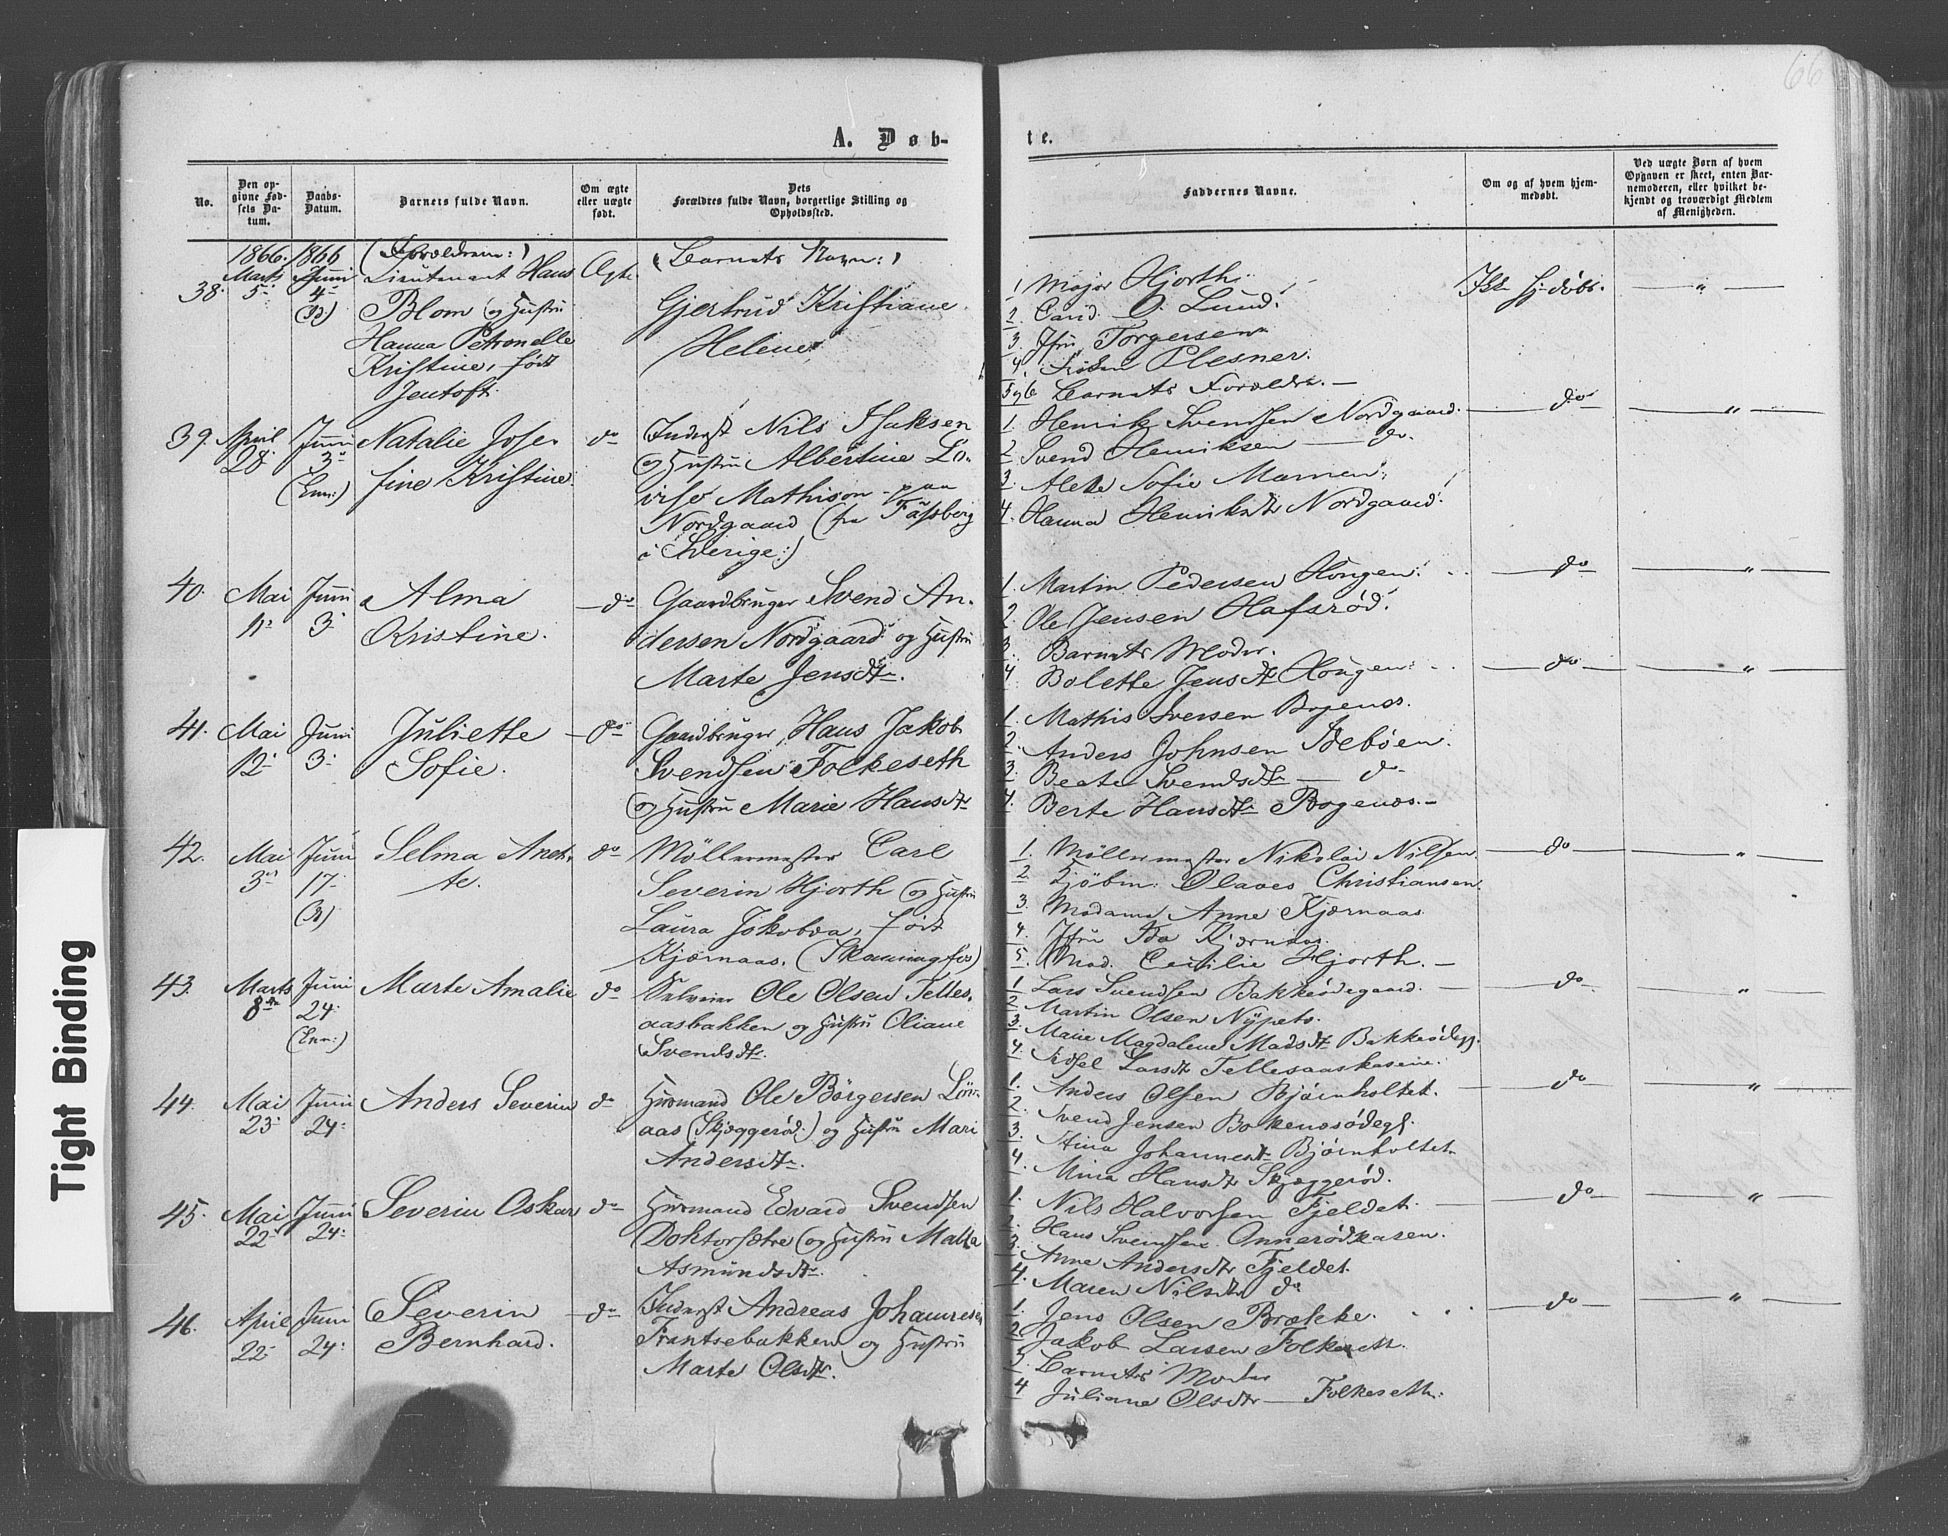 66
A. Døb-
te.
No.
Den op-
givne Fød-
sels Da-
tum.
Daabs-
Datum.
Barnets fulde Navn.
Om ægte
eller uægte
født.
Dets
Forældres fulde Navn, borgerlige Stilling og
Opholdssted.
Faddernes Navne.
Om og af hvem hjem-
medøbt.
Ved uægte Børn af hvem
Opgaven er skeet, enten Bar-
nemoderen, eller hvilket be-
kjendt og troværdigt Medlem
af Menigheden.
1866. 1866
38. Marts 5 Juni 4
(Forældrene:)
Lieutenant Hans
Blom og Hustru
Hanna Petronelle
Kristine, født
Jentoft.
Ægte.
(Barnets Navn:)
Gjertrud Kristiane
Helene
1 Major Hjorth
2. Cand. O. Lund.
3. Jfru Torgersen
4. Frøken Plesner.
5 g 6 Barnets Forældre.
Ikke hj.døbt. "
39. April 28. Juni 3
Natalie Jose-
fine Kristine
do
Inderst Nils Isaksen
og Hustru Albertine Lo-
vise Mathison paa
Nordgaard (fra
i Sverige:)
1. Henrik Svendsen Nordgaard.
2 Svend Henriksen do.
3. Alette Sofie
4. Hanna Henriksdtr Nordgaard
do "
40. Mai 11. Juni 3.
Alma
Kristine.
do
Gaardbruger Svend An-
dersen Nordgaard og Hustru
Marte Jensdtr.
1. Martin Pedersen Hougen.
2. Ole Jensen Hafsrød.
3. Barnets Moder.
4 Bolette Jensdtr Hougen.
do "
do "
41. Mai 12. Juni 3.
Juliette
Sofie.
do
Gaardbruger Hans Jakob
Svendsen Folkeseth
og Hustru Marie Hansdtr
1. Mathis Iversen Bogenes.
2. Anders Johnsen Idebøen.
3. Beate Svendsdtr do
4. Berte Hansdtr Bogenæs.
42. Mai 3. Juni 17.
Selma Anet-
te.
do
Möllermester Carl
Severin Hjorth og Hustru
Laura Jakobea, født
Kjærnaas. (Skaningsfos)
1. Möllermester Nikolai Nilsen.
2. Kjøbm. Olaves Christiansen
3. Madame Anne Kjærnaas
4. Jfru Ida Kjærnaas.
5. Mad. Cecilie Hjorth.
do "
43. Marts 8de Juni 24.
Marte Amalie
do
Selveier Ole Olsen Telles-
aasbakken og Hustru Oliane
Svendsdtr.
1 Lars Svendsen Bakkeødegaard.
2 Martin Olsen Nypets
3. Marie Magdalene Madsdtr Bakkeødeg.
4. Larsdtr Tellesaaskasene.
do "
44. Mai 23. Juni 24.
Anders Severin
do
Husmand Ole Börgersen Løv-
aas (Skjæggerød) og Hustru Mari
Andersdtr.
1. Anders Olsen Bjørnholtet.
2. Svend Jensen Bokenæsødeg.
3. Stina Johannesdtr Bjørnholtet.
4. Mina Hansdtr Skjæggerød.
do "
45. Mai 22 Juni 24.
Severin Oskar
do
Husmand Edvard Svendsen
Doktorsætre og Hustru Malla
Asmundsdtr.
1. Nils Halvorsen Fjeldet.
2. Hans Svendsen Onnerødkasen.
3. Anne Andersdtr Fjeldet.
4. Maren Nilsdtr do
do "
46. April 22. Juni 24.
Severin
Bernhard.
do
Inderst Andreas Johannesen
Frantsebakken og Hustru
Marte Olsdtr.
1. Jens Olsen Brække.
2 Jakob Larsen Folkeseth.
3. Barnets Moder
4 Juliane Olsdtr Folkeseth.
do "
Tight Binding